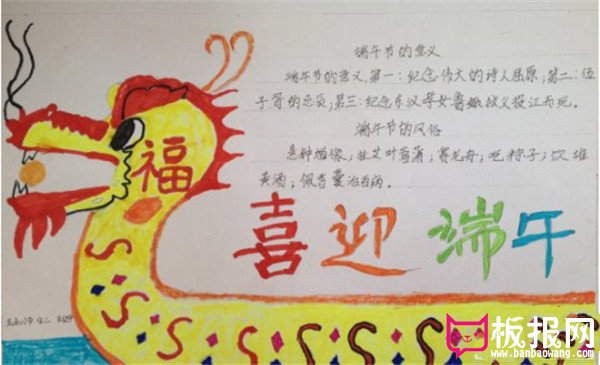 端午节的意义
端午节的意义第一:纪念伟大的诗人屈原;第二:伍
子胥的忌辰;第三:纪念东汉孝女曹娥救父投江而死。
端午节的风俗
悬钟馗像;挂艾叶菖蒲;赛龙舟;吃粽子;饮雄
黄酒;佩香囊治百病。
福
喜迎端午
板报网
www.banbaowang.com